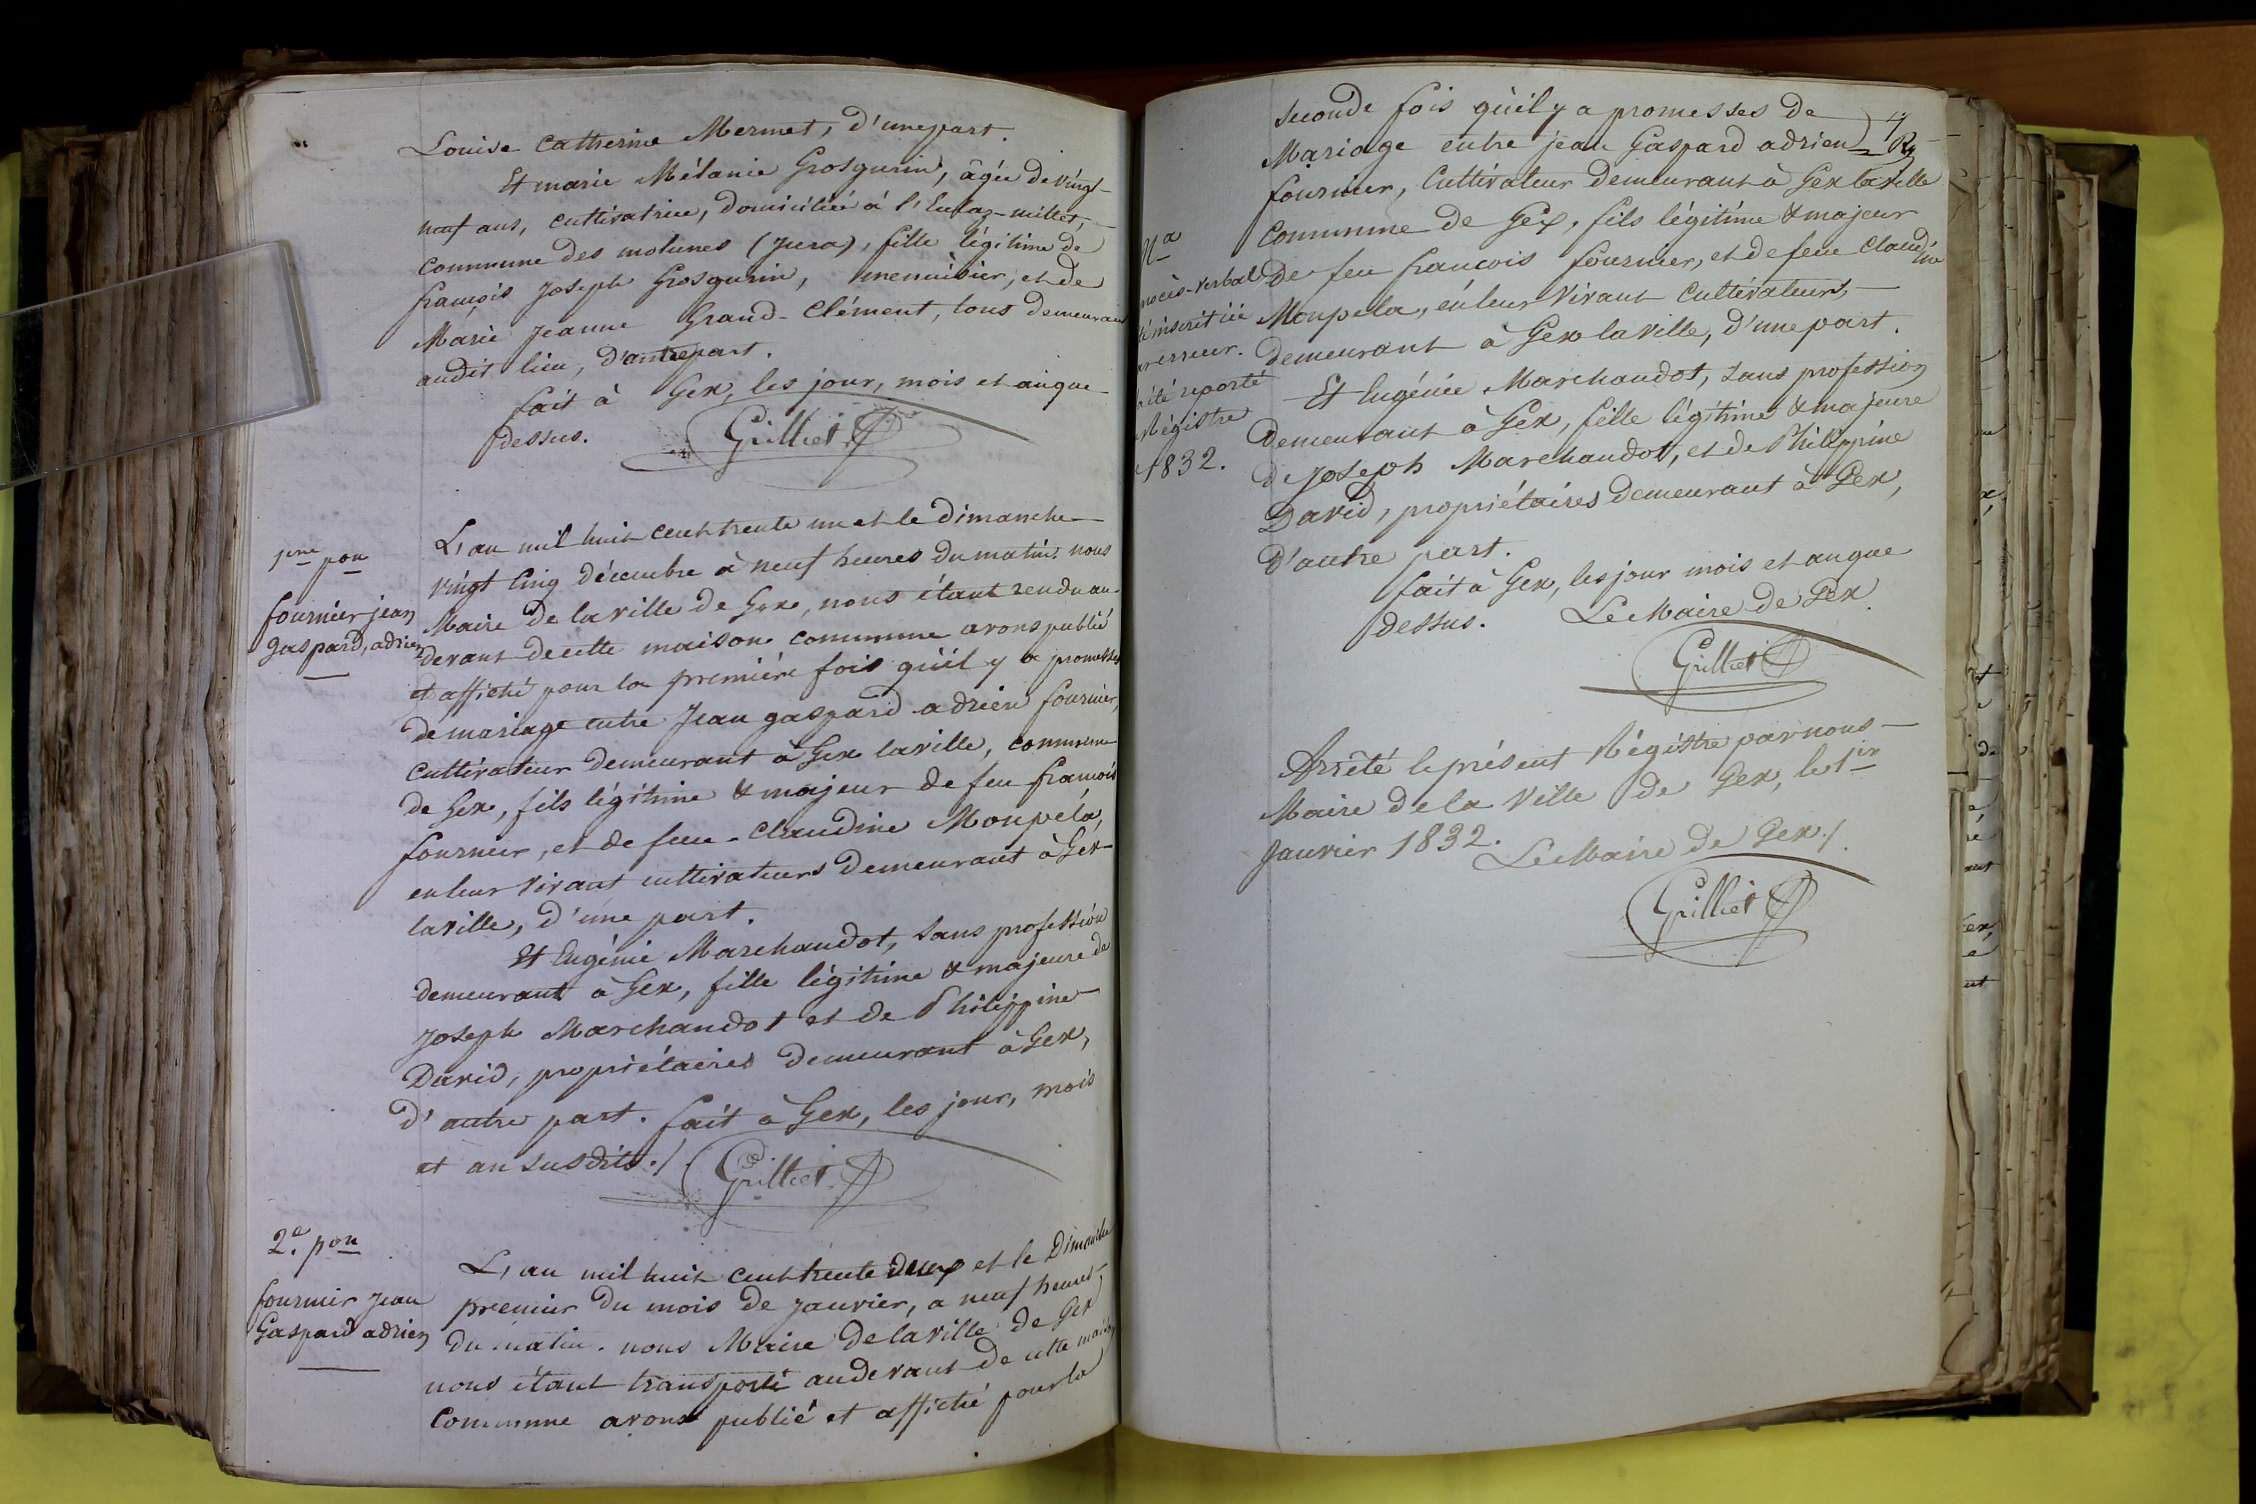 Louise Catherine Mermet, d'une part.
Et marie Mélanie Grosgurin, âgée de vingt-
neuf ans, cultivatrice, domiciliée à l'Enlaz-millet,
commune des molunes (Jura), fille légitime de
françois Joseph Grosgurin, menuisier, et de
Marie Jeanne Grand-Clément, tous demeurant
audit lieu, d'autre part.
fait à Gex, les jour, mois et an que
dessus. Grilliet
1ere pon
fournier jean
gaspard, adrien
L'an mil huit cent trente un et le dimanche
vingt cinq décembre à neuf heures du matin. nous
Maire de la ville de Gex, nous étant rendu au-
devant de cette maison commune avons publié
et affiché pour la première fois qu'il y a promesses
de mariage entre Jean gaspard adrien fournier,
cultivateur demeurant à Gex laville, commune
de Gex, fils légitime & majeur de feu françois
fournier, et de feue Claudine Monpela,
en leur vivant cultivateurs demeurant à Gex-
laville, d'une part.
Et Eugénie Marchandot, sans profession
demeurant à Gex, fille légitime & majeure de
Joseph Marchandot et de Philippine
David, propriétaires demeurant à Gex,
d'autre part. fait à Gex, les jour, mois
et an susdits./. Grilliet
2e. pon
fournier Jean
Gaspard adrien
L'an mil huit cent trente deux et le Dimanche
premier du mois de janvier, a neuf heures
du matin. nous Maire de la ville de Gex
nous étant transporté audevant de cette maison
commune avons publié et affiché pour la
seconde fois qu'il y a promesses de
Mariage entre jean Gaspard adrien
fournier, Cultivateur demeurant à Gex la ville
commune de Gex, fils légitime & majeur
de feu francois fournier, et de feue Claudine
Monpela, en leur vivant cultivateurs,
demeurant à Gex la ville, d'une part.
Et Eugénie Marchandot, sans profession
demeurant à Gex, fille légitime & majeure
de Joseph Marchandot, et de Philippine
David, propriétaires demeurant à Gex,
d'autre part.
fait à Gex, les jour mois et an que
dessus. Le Maire de Gex
Grilliet
Na
procès-verbal
inscrit ici
erreur.
a été reporté
Régistre
1832.
Arrêté le présent Régistre par nous
Maire de la Ville de Gex, le 1er
Janvier 1832.
Le Maire de Gex./.
Grilliet